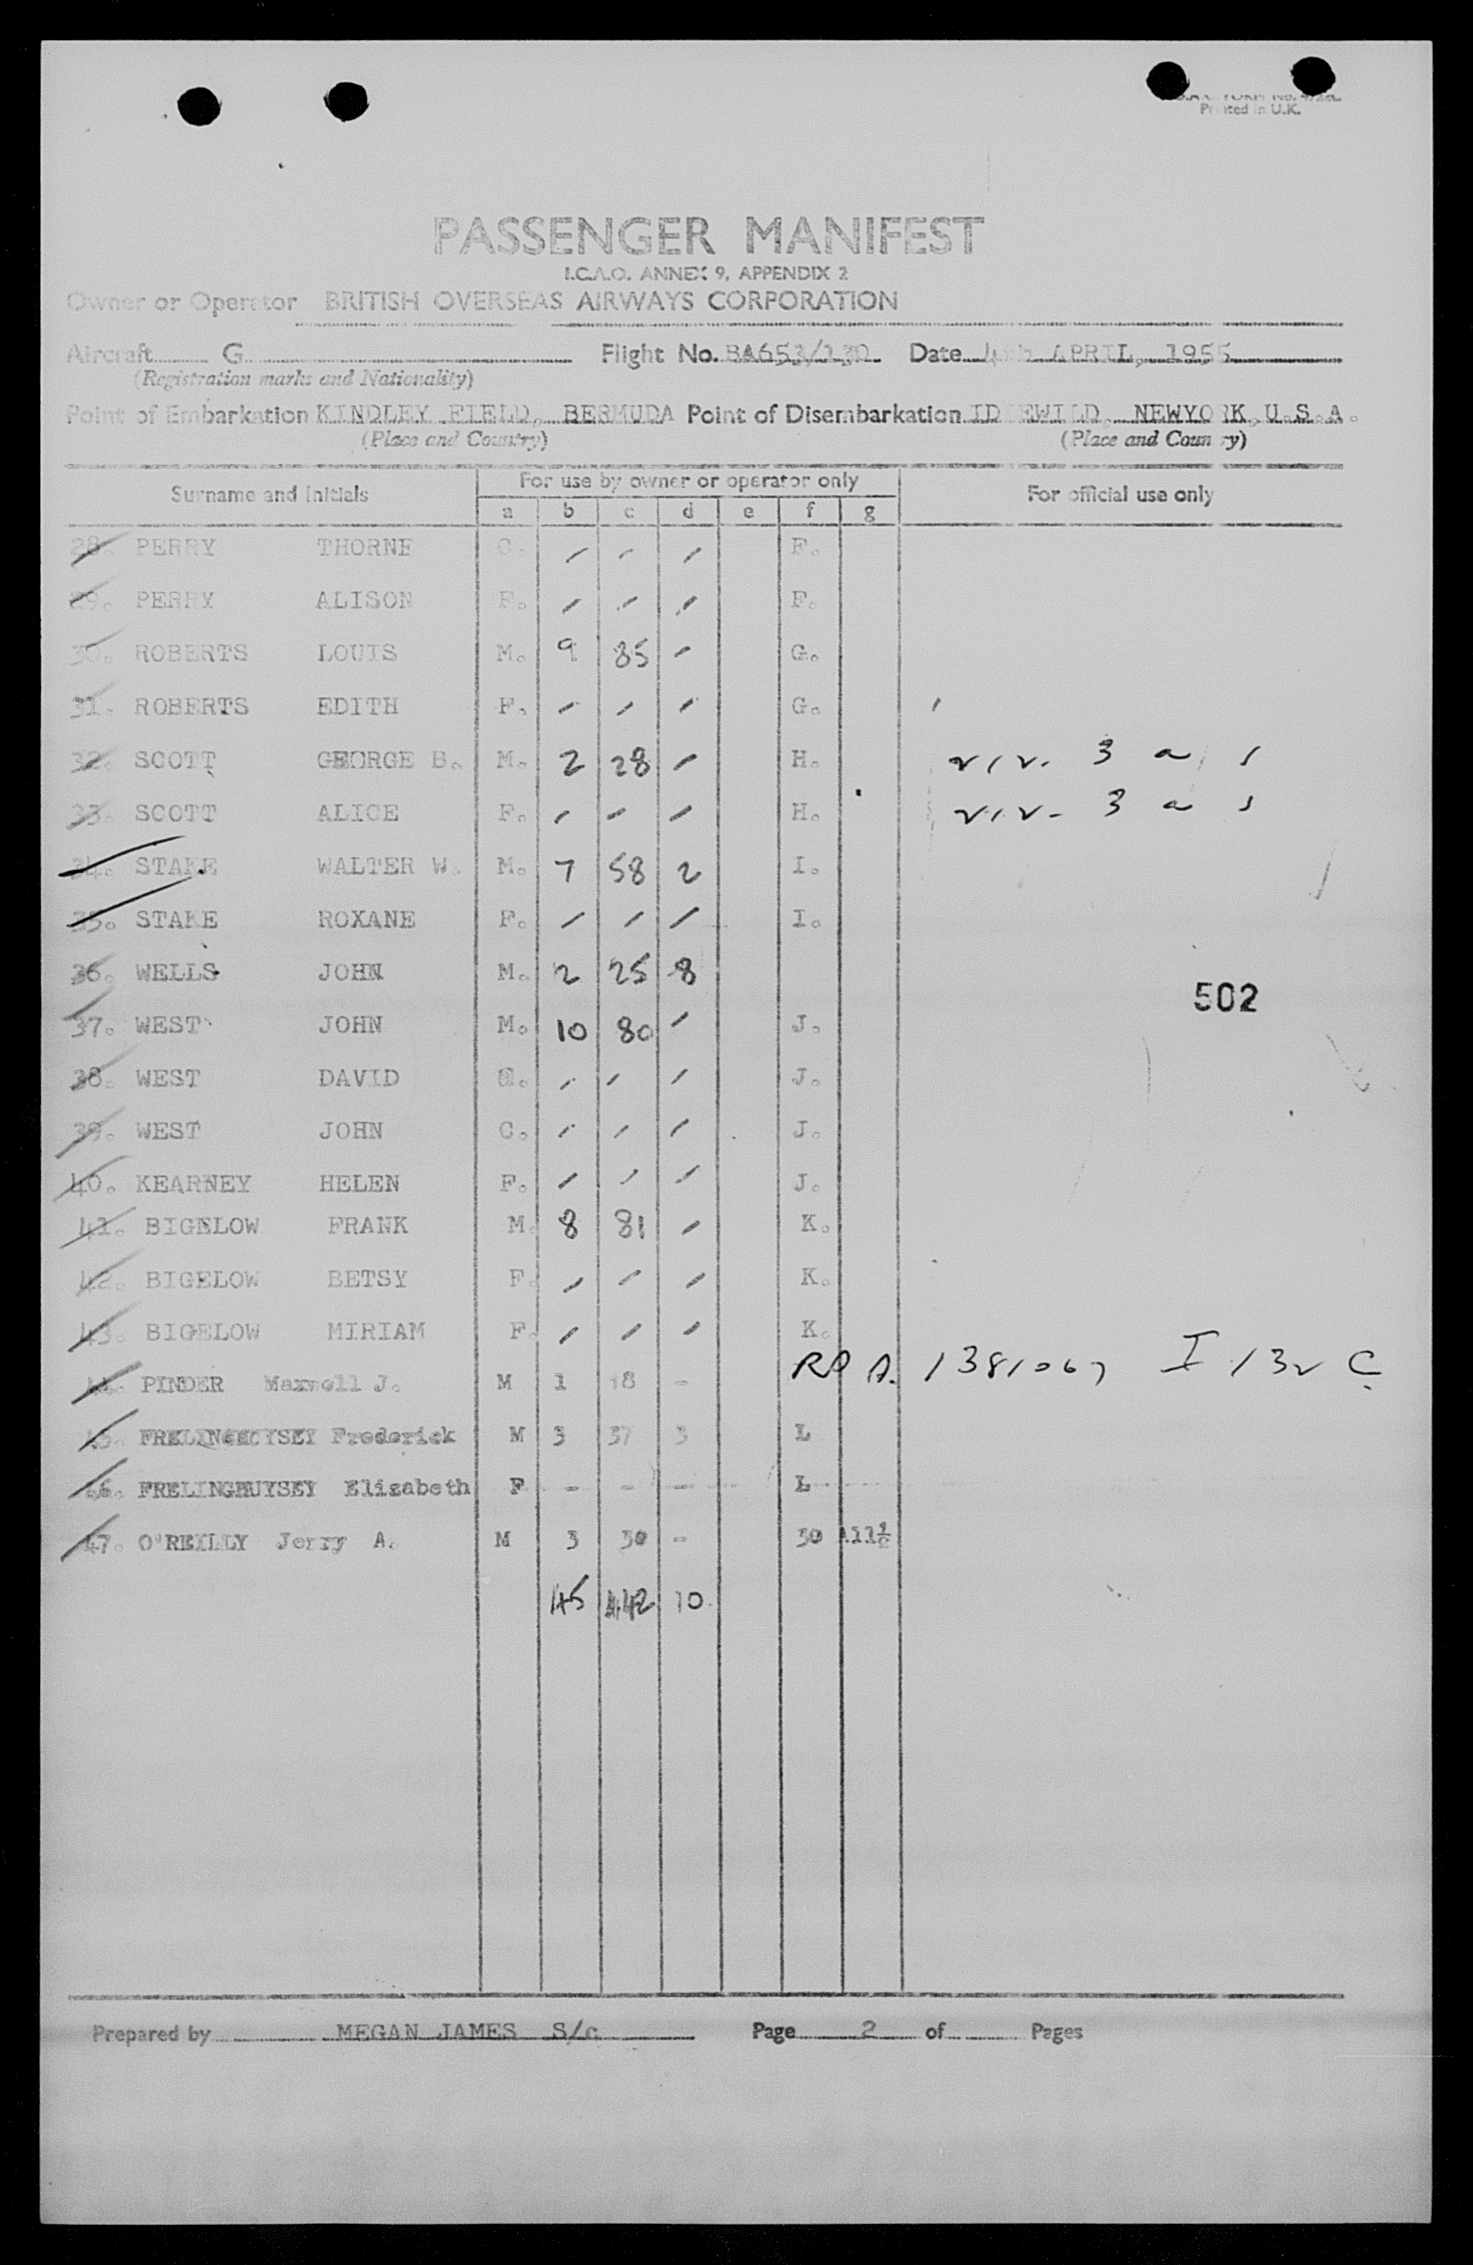 Printed in U.K.
PASSENGER MANIFEST
I.C.A.O. ANNEX 9, APPENDIX 2
Owner or Operator BRITISH OVERSEAS AIRWAYS CORPORATION
Aircraft G Flight No. BA653/130 Date 4th APRIL, 1955
(Registration marks and Nationality)
Point of Embarkation KINDLEY FIELD, BERMUDA Point of Disembarkation IDLEWILD, NEWYORK, U.S.A.
(Place and Country) (Place and Country)
Surname and Initials For use by owner or operator only For official use only
a b c d e f g
28. PERRY THORNE C. / / / F.
29. PERRY ALISON F. / / / F.
30. ROBERTS LOUIS M. 9 85 / G.
31. ROBERTS EDITH F. / / / G.
32. SCOTT GEORGE B. M. 2 28 / H. 3 a
33. SCOTT ALICE F. / / / H. 3 a
34. STAKE WALTER W. M. 7 58 2 I.
35. STAKE ROXANE F. / / / I.
36. WELLS JOHN M. 2 25 8
502
37. WEST JOHN M. 10 80 / J.
38. WEST DAVID / / / J.
39. WEST JOHN C. / / / J.
40. KEARNEY HELEN F. / / / J.
41. BIGELOW FRANK M. 8 81 / K.
42. BIGELOW BETSY F. / / / K.
43. BIGELOW MIRIAM F. / / / K.
44. PINDER Maxwell J. M 1 18 -
45. FRELINGHUYSEY Frederick M 3 37 3 L
46. FRELINGHUYSEY Elizabeth F - - - L
47. O'REILLY Jerry A. M 3 30 - 30 A11½
45 442 10
Prepared by MEGAN JAMES S/c Page 2 of Pages